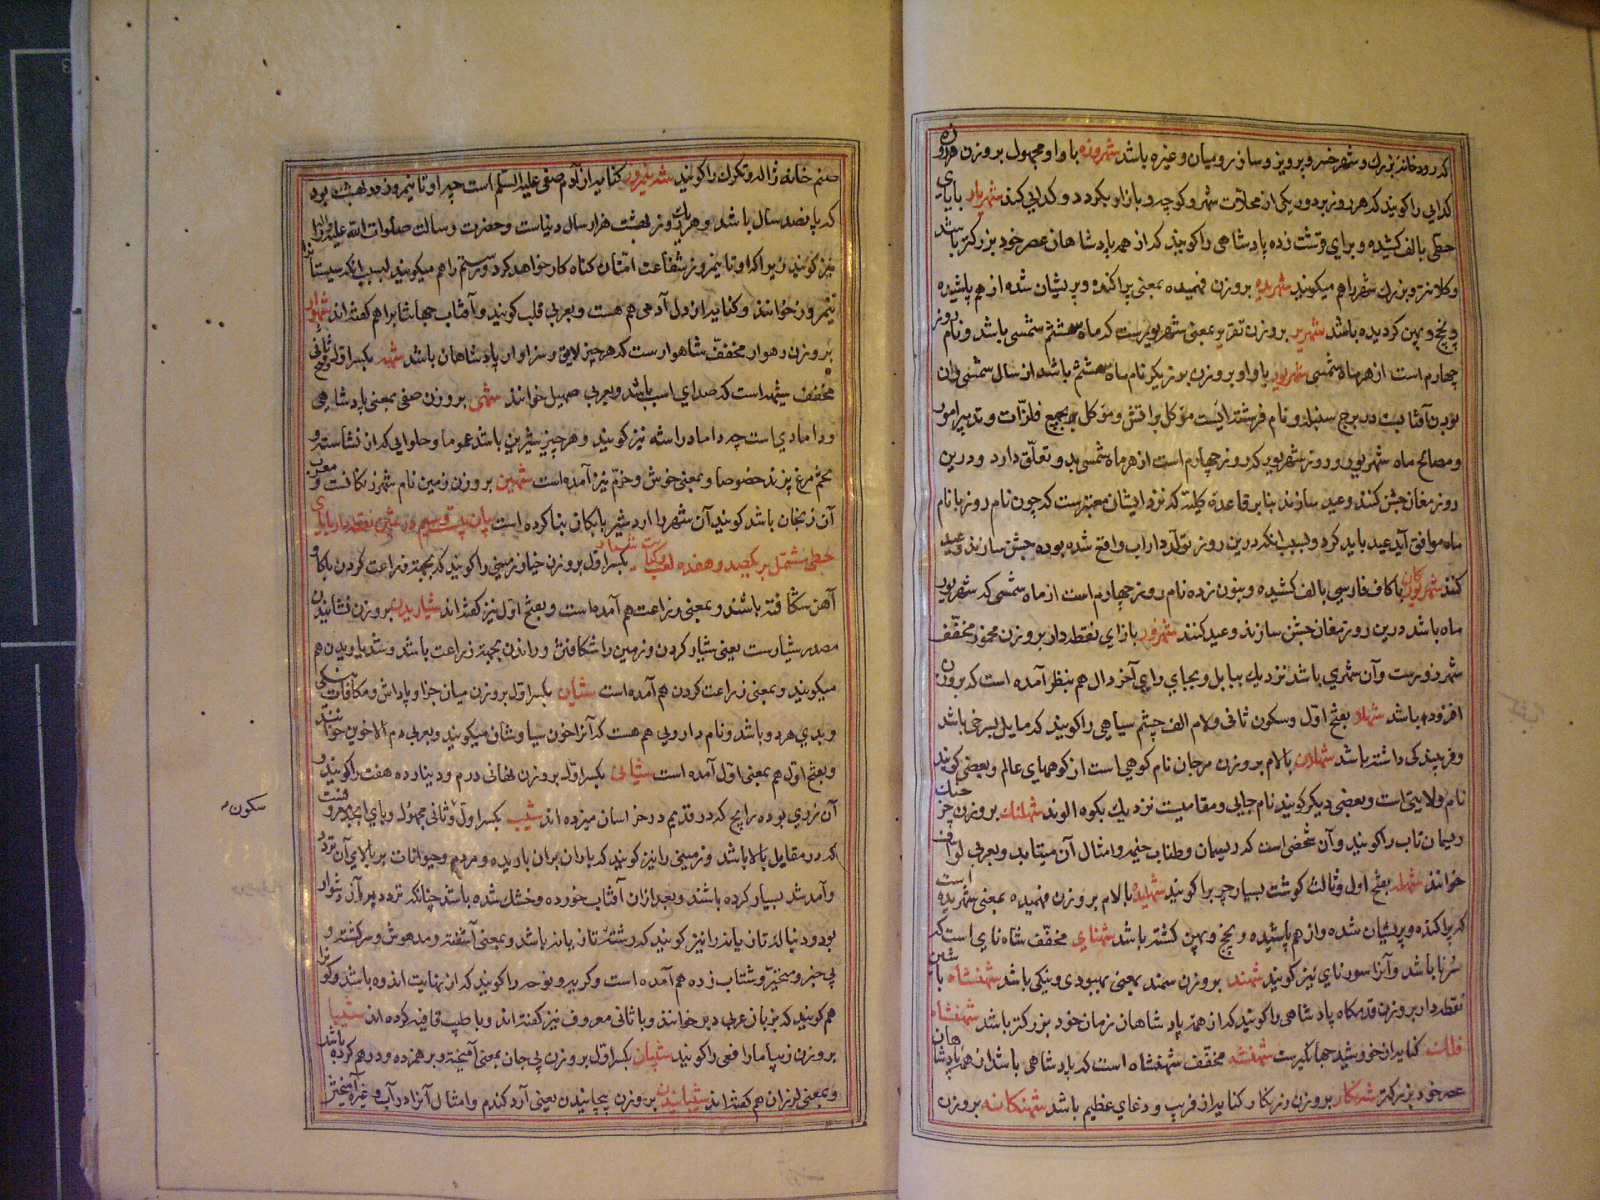 که رودخانه بزرك و شهر خسرو پرویز و ساز رومیان و غیره باشد شهروزه با واو مجهول بر وزن هر روزه
کدایی را کویند که هر روز بدور یکی از محلات شهر و کوچه و بازار بکردد و کدایی کند شهریار با یای
حطی بالف کشیده و برای قرشت زده پادشاهی را کویند که از همه پادشاهان عصر خود بزرکتر باشد
و کلانتر و بزرك شهر را هم میکویند شهریده بر وزن فهمیده بمعنی پراکنده و پریشان شده از هم پاشیده
و پخچ و پهن کردیده باشد شهریر بر وزن تقریر بمعنی شهریورست که ماه ششم شمسی باشد و نام روز
چهارم است از هر ماه شمسی شهریور با واو بر وزن نام ماه ششم باشد از سال شمسی و آن
بودن آفتابست در برج سنبله و نام فرشته ایست موکل بر آتش و موکل بر جمیع فلزات و تدبیر امور
و مصالح ماه شهریور و روز شهریور که روز چهارم است از هر ماه شمسی بدو تعلق دارد و درین
روز مغان جشن کنند و عید سازند بنا بر قاعده کلیه که نزد ایشان معتبرست که چون نام روز با نام
ماه موافق آید عید باید کرد و بسبب آنکه درین روز تولد داراب واقع شده بوده جشن سازند و عید
کنند شهریورکان با کاف فارسی بالف کشیده و بنون زده نام روز چهارم است از ماه شمسی که شهریور
ماه باشد درین روز مغان جشن سازند و عید کنند شهزور با زای نقطه دار بر وزن مخفف
شهرزورست و آن شهری باشد نزدیك ببابل و بجای رای آخر دال هم بنظر آمده است که بر وزن
افزود باشد شهلا بفتح اول و سکون ثانی و لام الف چشم سیاهی را کویند که مایل بسرخی باشد
و فریبندکی داشته باشد شهلان بالام بر وزن مرجان نام کوهی است از کوههای عالم و بعضی کویند
نام ولایتی است و بعضی دیکر کویند نام جایی و مقامیست نزدیك بکوه الوند شهلنك بر وزن خرچنك
ریسمان تاب را کویند و آن شخصی است که ریسمان و طناب خیمه و امثال آن میتابد و بعربی لواف
خوانند شهله بفتح اول و ثالث کوشت بسیار چرب را کویند شهلیده بالام بر وزن فهمیده بمعنی شهریده است
که پراکنده و پریشان شده و از هم پاشیده و پخچ و پهن کشته باشد شهنای مخفف شاه نای است که
سرنا باشد و آنرا سورنای نیز کویند شهمند بر وزن سمند بمعنی بهبودی و نیکی باشد شهنشاه با شین
نقطه دار بر وزن قدمکاه پادشاهی را کویند که از همه پادشاهان زمان خود بزرکتر باشد شهنشاه
فلك کنایه از خورشید جهانکیرست شهنشه مخفف شهنشاه است که پادشاهی باشد از همه پادشاهان
عصر خود بزرکتر بر وزن کنایه از فریب و دغای عظیم باشد بر وزن
صنم خانه ژاله و تکرك را کویند شه نیمروز کنایه از آدم صفی علیه السلم است چه او تا نیمروز در بهشت بود
که پانصد سال باشد و هر یك روز بهشت هزار سال دنیاست و حضرت رسالت صلوات الله علیه و آله را
نیز کویند زیرا که او تا نیمروز شفاعت امتان کناه کار خواهد کرد و رستم را هم میکویند بسبب آنکه سیستانرا
نیمروز خوانند و کنایه از دل آدمی هم هست و بعربی قلب کویند و آفتاب جهانتابرا هم کفته اند شهوار
بر وزن رهوار مخفف شاهوارست که هر چیز لایق و سزاوار پادشاهان باشد شهه بکسر اول و فتح ثانی
مخفف شیهه است که صدای اسب باشد و بعربی صهیل خوانند شهی بر وزن صفی بمعنی پادشاهی
و دامادی است چه داماد را شه نیز کویند و هر چیز شیرین باشد عموما و حلوایی که از نشاسته و
تخم مرغ پزند خصوصا و بمعنی خوش و خرم نیز آمده است شهین بر وزن زمین نام شهر زنکانست و معرب
آن زنجان باشد کویند آن شهر را اردشیر بابکان بنا کرده است بیان بیست و سیم در شین نقطه دار با یای
حطی مشتمل بر یکصد و هفده لغت شیار بکسر اول بر وزن خیار زمینی را کویند که بجهت زراعت کردن با کاو
آهن شکافته باشند و بمعنی زراعت هم آمده است و بفتح اول نیز کفته اند شیاریدن بر وزن نشانیدن
مصدر شیارست یعنی شیار کردن و زمین را شکافتن و راندن بجهت زراعت باشد و شدیاریدن هم
میکویند و بمعنی زراعت کردن هم آمده است شیان بکسر اول بر وزن میان جزا و پاداش و مکافات نیکی
و بدی هر دو باشد و نام دارویی هم هست که آنرا خون سیاوشان میکویند و بعربی دم الاخوین خوانند
و بفتح اول هم بمعنی اول آمده است شیانی بکسر اول بر وزن درم و دینار ده هفت را کویند و
آن زری بوده رایج که در قدیم در خراسان میزده اند شیب بکسر اول و ثانی مجهول و بای ابجد
که در مقابل بالا باشد و زمینی را نیز کویند که باران بران باریده و مردم و حیوانات بر بالای آن تردد
و آمد شد بسیار کرده باشند و بعد ازان آفتاب خورده و خشك شده باشد چنانکه تردد بر آن دشوار
بود و دنباله تازیانه را نیز کویند که رشته تازیانه باشد و بمعنی آشفته و مدهوش و سرکشته و
بی خبر و متحیر و شتاب زده هم آمده است و کریه و نوحه را کویند که از نهایت اندوه باشد و
هم کویند که بزبان عربی خوانند و با ثانی معروف نیز کفته اند و با طیب قافیه کرده اند شیبا
بر وزن زیبا مار افعی را کویند شیبان بکسر اول بر وزن بی جان بمعنی آمیخته و بر هم زده و درهم کرده باشد
و بمعنی لرزان هم کفته اند شیبانیدن بر وزن پیچانیدن یعنی آرد کندم و امثال آنرا در آب و غیره آمیختن
سکون